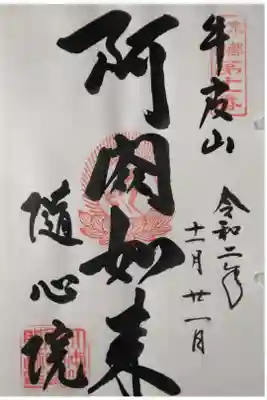 牛皮山
令和二年
十一月廿一日
阿閦如来
隨心院